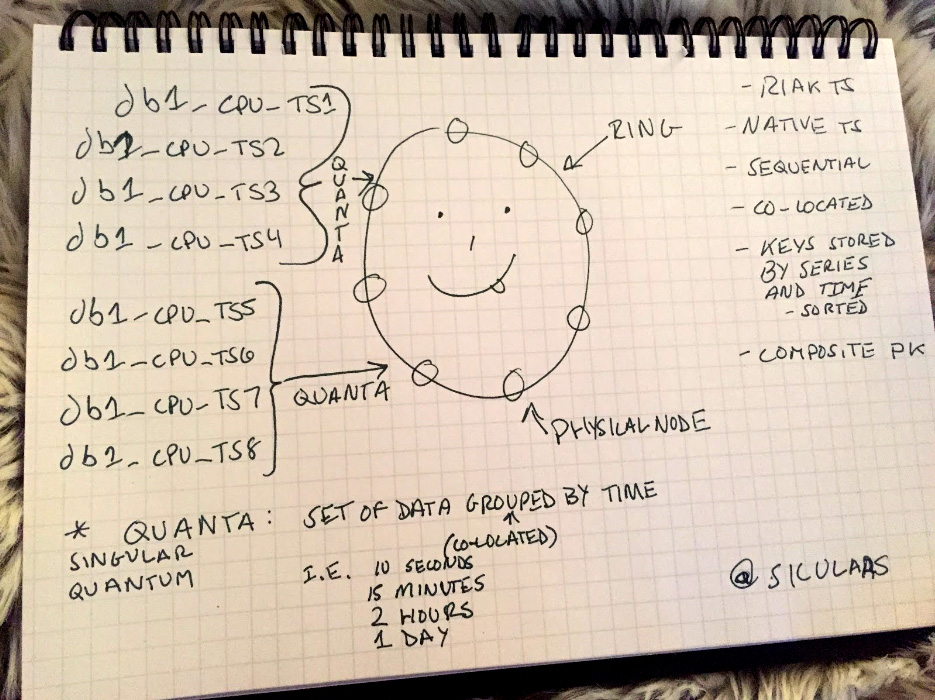 db1_CPU_TS1
db1_CPU_TS2
db1_CPU_TS3
db1_CPU_TS4
QUANTA
db1_CPU_TS5
db1_CPU_TS6
db1_CPU_TS7
db1_CPU_TS8
QUANTA
RING
PHYSICAL NODE
- RIAK TS
- NATIVE TS
- SEQUENTIAL
- CO-LOCATED
- KEYS STORED
BY SERIES
AND TIME
- SORTED
- COMPOSITE PK
* QUANTA: SET OF DATA GROUPED BY TIME
(CO-LOCATED)
SINGULAR
QUANTUM
I.E. 10 SECONDS
15 MINUTES
2 HOURS
1 DAY
@SICULARS